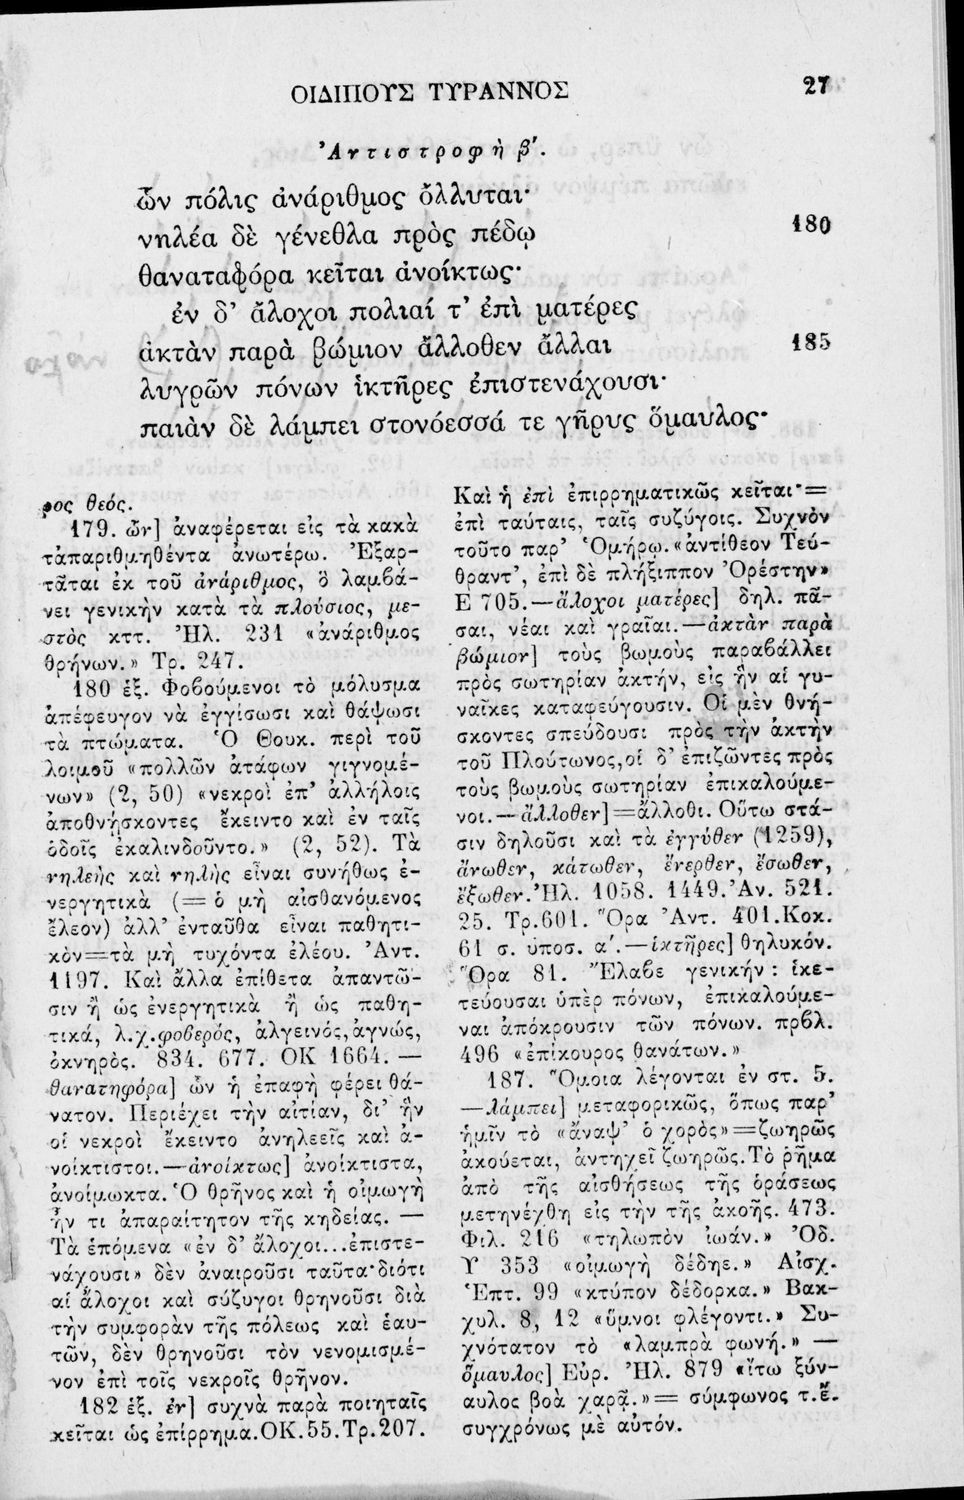 ΟΙΔΙΠΟΥΣ ΤΥΡΑΝΝΟΣ 27
Ἀντιστροφὴ β΄.
ὧν πόλις ἀνάριθμος ὄλλυται·
νηλέα δὲ γένεθλα πρὸς πέδῳ 180
θαναταφόρα κεῖται ἀνοίκτως·
ἐν δ’ ἄλοχοι πολιαί τ’ ἐπὶ ματέρες
ἀκτὰν παρὰ βώμιον ἄλλοθεν ἄλλαι 185
λυγρῶν πόνων ἱκτῆρες ἐπιστενάχουσι·
παιὰν δὲ λάμπει στονόεσσά τε γῆρυς ὅμαυλος·
ρος θεός.
179. ὧν] ἀναφέρεται εἰς τὰ κακὰ
τἀπαριθμηθέντα ἀνωτέρω. Ἐξαρ-
τᾶται ἐκ τοῦ ἀνάριθμος, ὃ λαμβά-
νει γενικὴν κατὰ τὰ πλούσιος, με-
στὸς κττ. Ἠλ. 231 «ἀνάριθμος
θρήνων.» Τρ. 247.
180 ἑξ. Φοβούμενοι τὸ μόλυσμα
ἀπέφευγον νὰ ἐγγίσωσι καὶ θάψωσι
τὰ πτώματα. Ὁ Θουκ. περὶ τοῦ
λοιμοῦ «πολλῶν ἀτάφων γιγνομέ-
νων» (2, 50) «νεκροὶ ἐπ’ ἀλλήλοις
ἀποθνήσκοντες ἔκειντο καὶ ἐν ταῖς
ὁδοῖς ἐκαλινδοῦντο.» (2, 52). Τὰ
νηλεὴς καὶ νηλὴς εἶναι συνήθως ἐ-
νεργητικὰ (= ὁ μὴ αἰσθανόμενος
ἔλεον) ἀλλ’ ἐνταῦθα εἶναι παθητι-
κὸν=τὰ μὴ τυχόντα ἐλέου. Ἀντ.
1197. Καὶ ἄλλα ἐπίθετα ἀπαντῶ-
σιν ἢ ὡς ἐνεργητικὰ ἢ ὡς παθη-
τικά, λ.χ. φοβερός, ἀλγεινός, ἀγνώς,
ὀκνηρὸς. 834. 677. ΟΚ 1664. —
θανατηφόρα] ὧν ἡ ἐπαφὴ φέρει θά-
νατον. Περιέχει τὴν αἰτίαν, δι’ ἣν
οἱ νεκροὶ ἔκειντο ἀνηλεεῖς καὶ ἀ-
νοίκτιστοι.—ἀνοίκτως] ἀνοίκτιστα,
ἀνοίμωκτα. Ὁ θρῆνος καὶ ἡ οἰμωγὴ
ἦν τι ἀπαραίτητον τῆς κηδείας. —
Τὰ ἑπόμενα «ἐν δ’ ἄλοχοι...ἐπιστε-
νάχουσι» δὲν ἀναιροῦσι ταῦτα·διότι
αἱ ἄλοχοι καὶ σύζυγοι θρηνοῦσι διὰ
τὴν συμφορὰν τῆς πόλεως καὶ ἑαυ-
τῶν, δὲν θρηνοῦσι τὸν νενομισμέ-
νον ἐπὶ τοῖς νεκροῖς θρῆνον.
182 ἑξ. ἐν] συχνὰ παρὰ ποιηταῖς
κεῖται ὡς ἐπίρρημα.ΟΚ.55.Τρ.207.
Καὶ ἡ ἐπὶ ἐπιρρηματικῶς κεῖται·=
ἐπὶ ταύταις, ταῖς συζύγοις. Συχνὸν
τοῦτο παρ’ Ὁμήρῳ.«ἀντίθεον Τεύ-
θραντ’, ἐπὶ δὲ πλήξιππον Ὀρέστην»
Ε 705.—ἄλοχοι ματέρες] δηλ. πᾶ-
σαι, νέαι καὶ γραῖαι.—ἀκτὰν παρὰ
βώμιον] τοὺς βωμοὺς παραβάλλει
πρὸς σωτηρίαν ἀκτήν, εἰς ἣν αἱ γυ-
ναῖκες καταφεύγουσιν. Οἱ μὲν θνή-
σκοντες σπεύδουσι πρὸς τὴν ἀκτὴν
τοῦ Πλούτωνος,οἱ δ’ ἐπιζῶντες πρὸς
τοὺς βωμοὺς σωτηρίαν ἐπικαλούμε-
νοι.—ἄλλοθεν]=ἄλλοθι. Οὕτω στά-
σιν δηλοῦσι καὶ τὰ ἐγγύθεν (1259),
ἄνωθεν, κάτωθεν, ἔνερθεν, ἔσωθεν,
ἔξωθεν. Ἠλ. 1058. 1449. Ἀν. 521.
25. Τρ.601. Ὅρα Ἀντ. 401.Κοκ.
61 σ. ὑποσ. α΄.—ἱκτῆρες] θηλυκόν.
Ὅρα 81. Ἔλαβε γενικήν : ἱκε-
τεύουσαι ὑπὲρ πόνων, ἐπικαλούμε-
ναι ἀπόκρουσιν τῶν πόνων. πρβλ.
496 «ἐπίκουρος θανάτων.»
187. Ὅμοια λέγονται ἐν στ. 5.
—λάμπει] μεταφορικῶς, ὅπως παρ’
ἡμῖν τὸ «ἄναψ’ ὁ χορὸς»=ζωηρῶς
ἀκούεται, ἀντηχεῖ ζωηρῶς.Τὸ ῥῆμα
ἀπὸ τῆς αἰσθήσεως τῆς ὁράσεως
μετηνέχθη εἰς τὴν τῆς ἀκοῆς. 473.
Φιλ. 216 «τηλωπὸν ἰωάν.» Ὀδ.
Υ 353 «οἰμωγὴ δέδηε.» Αἰσχ.
Ἑπτ. 99 «κτύπον δέδορκα.» Βακ-
χυλ. 8, 12 «ὕμνοι φλέγοντι.» Συ-
χνότατον τὸ «λαμπρὰ φωνή.» —
ὅμαυλος] Εὐρ. Ἠλ. 879 «ἴτω ξύν-
αυλος βοὰ χαρᾷ.»= σύμφωνος τ.ἔ.
συγχρόνως μὲ αὐτόν.